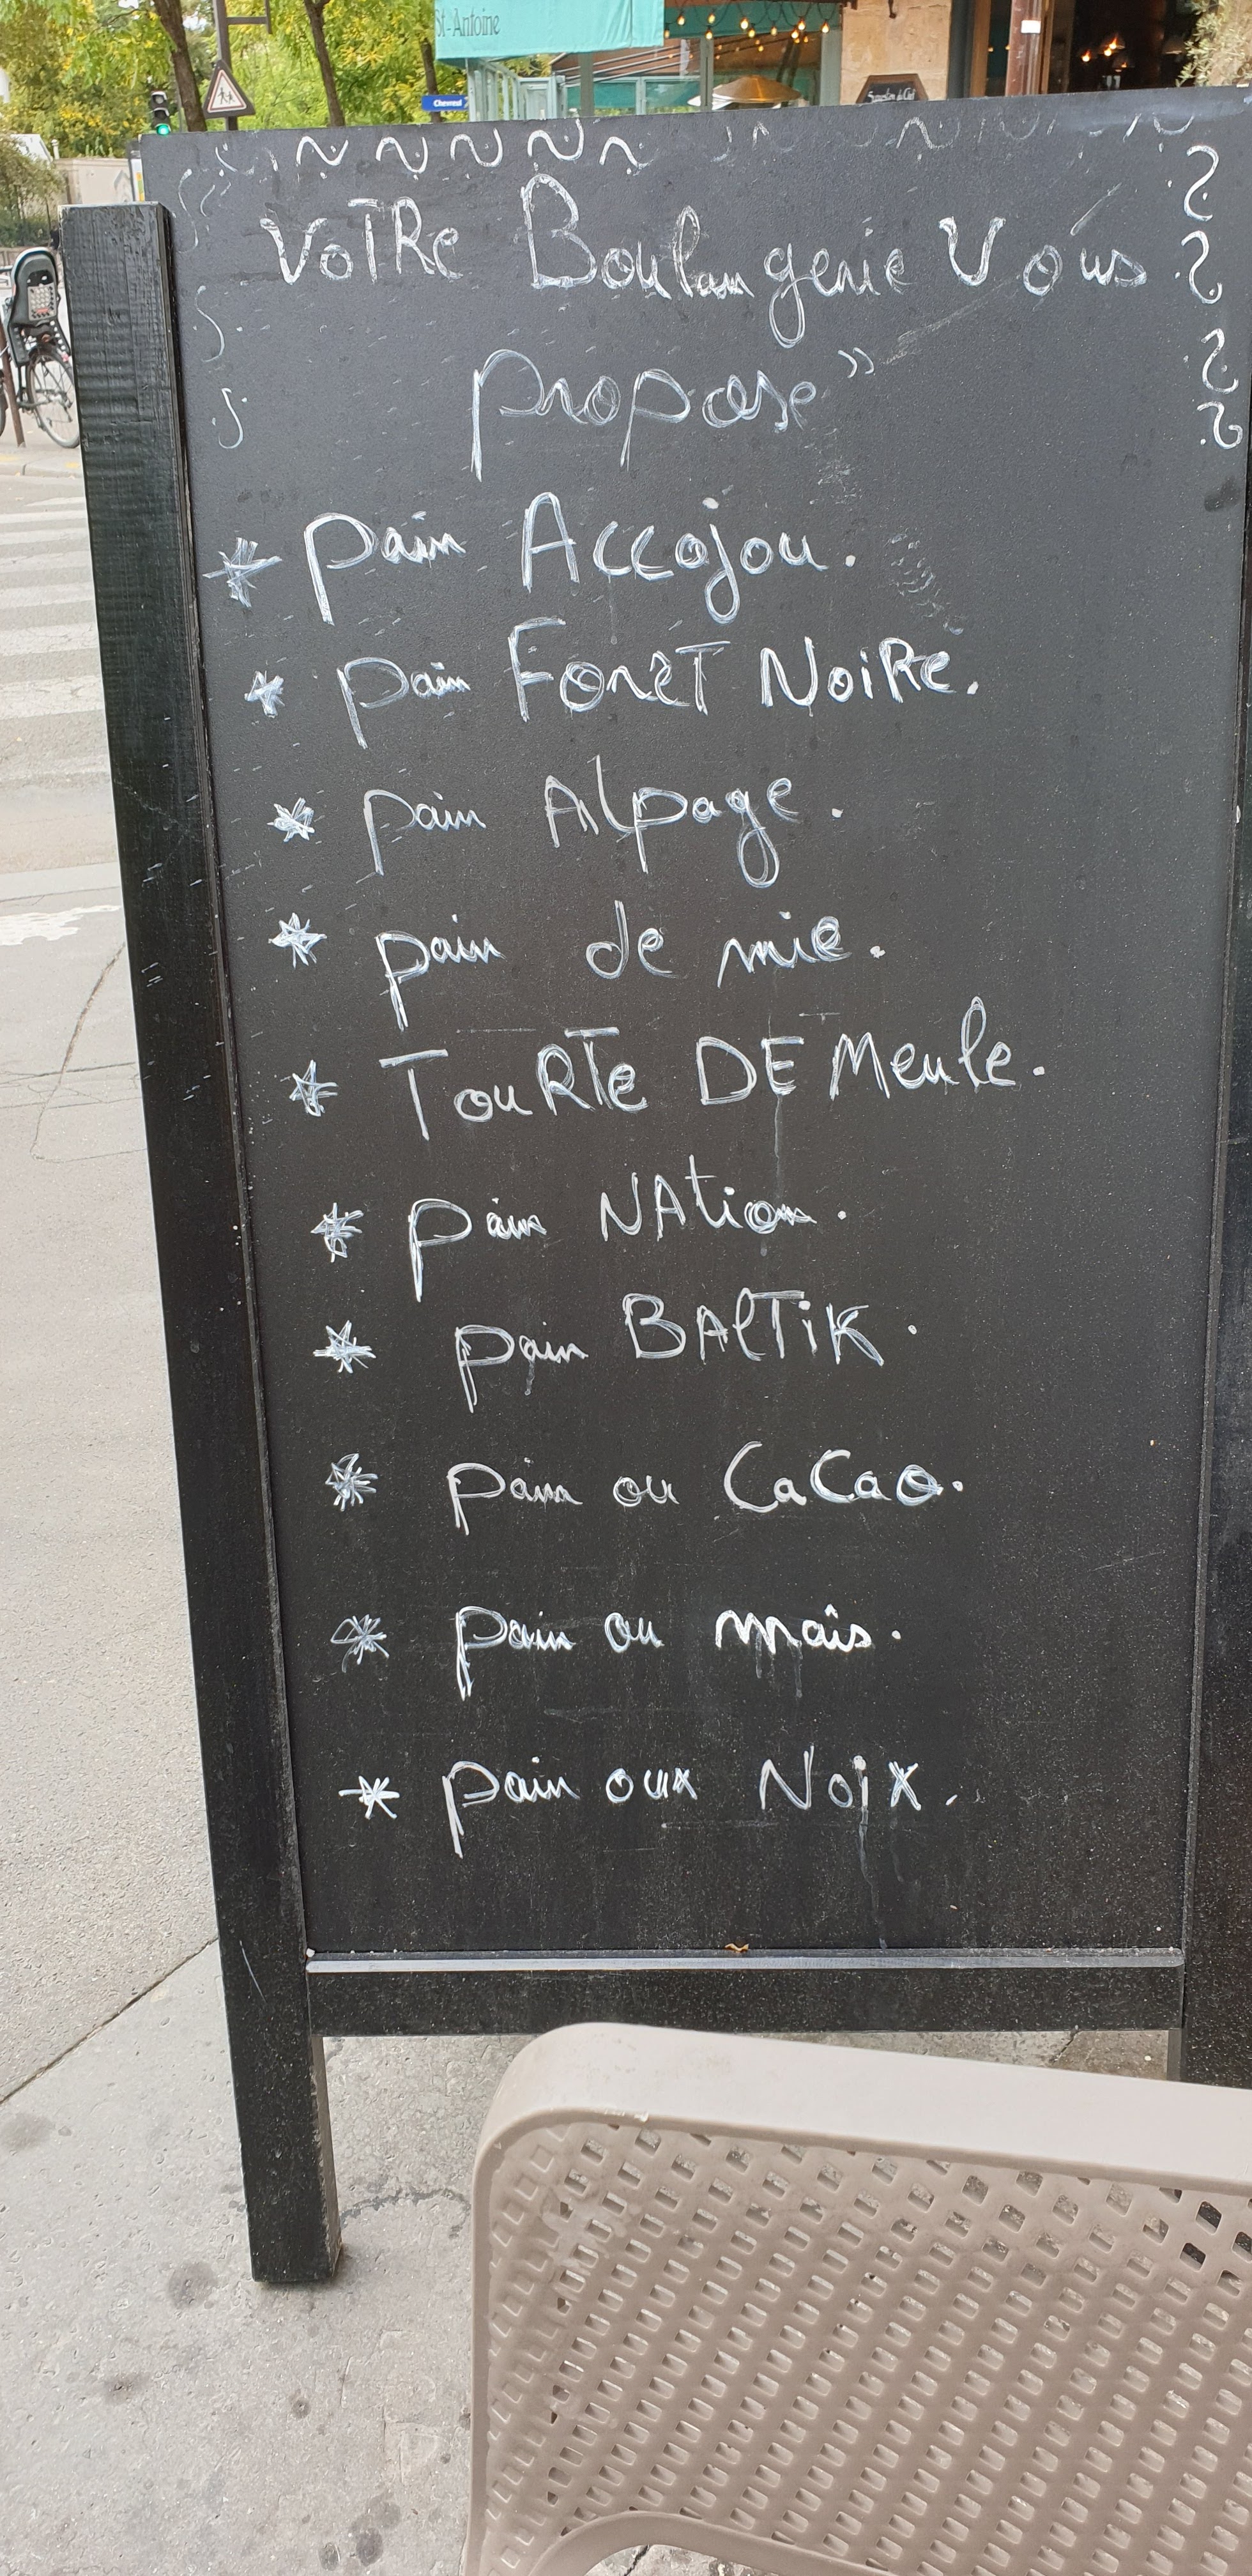 St-Antoine
Chevreul
Votre Boulangerie Vous
propose"
* pain Accojou.
* pain Foret Noire.
* pain Alpage.
* pain de mie.
* Tourte DE Meule.
* pain NAtion.
* pain BAlTiK.
* pain au CaCao.
* pain au maïs.
* pain aux Noix.